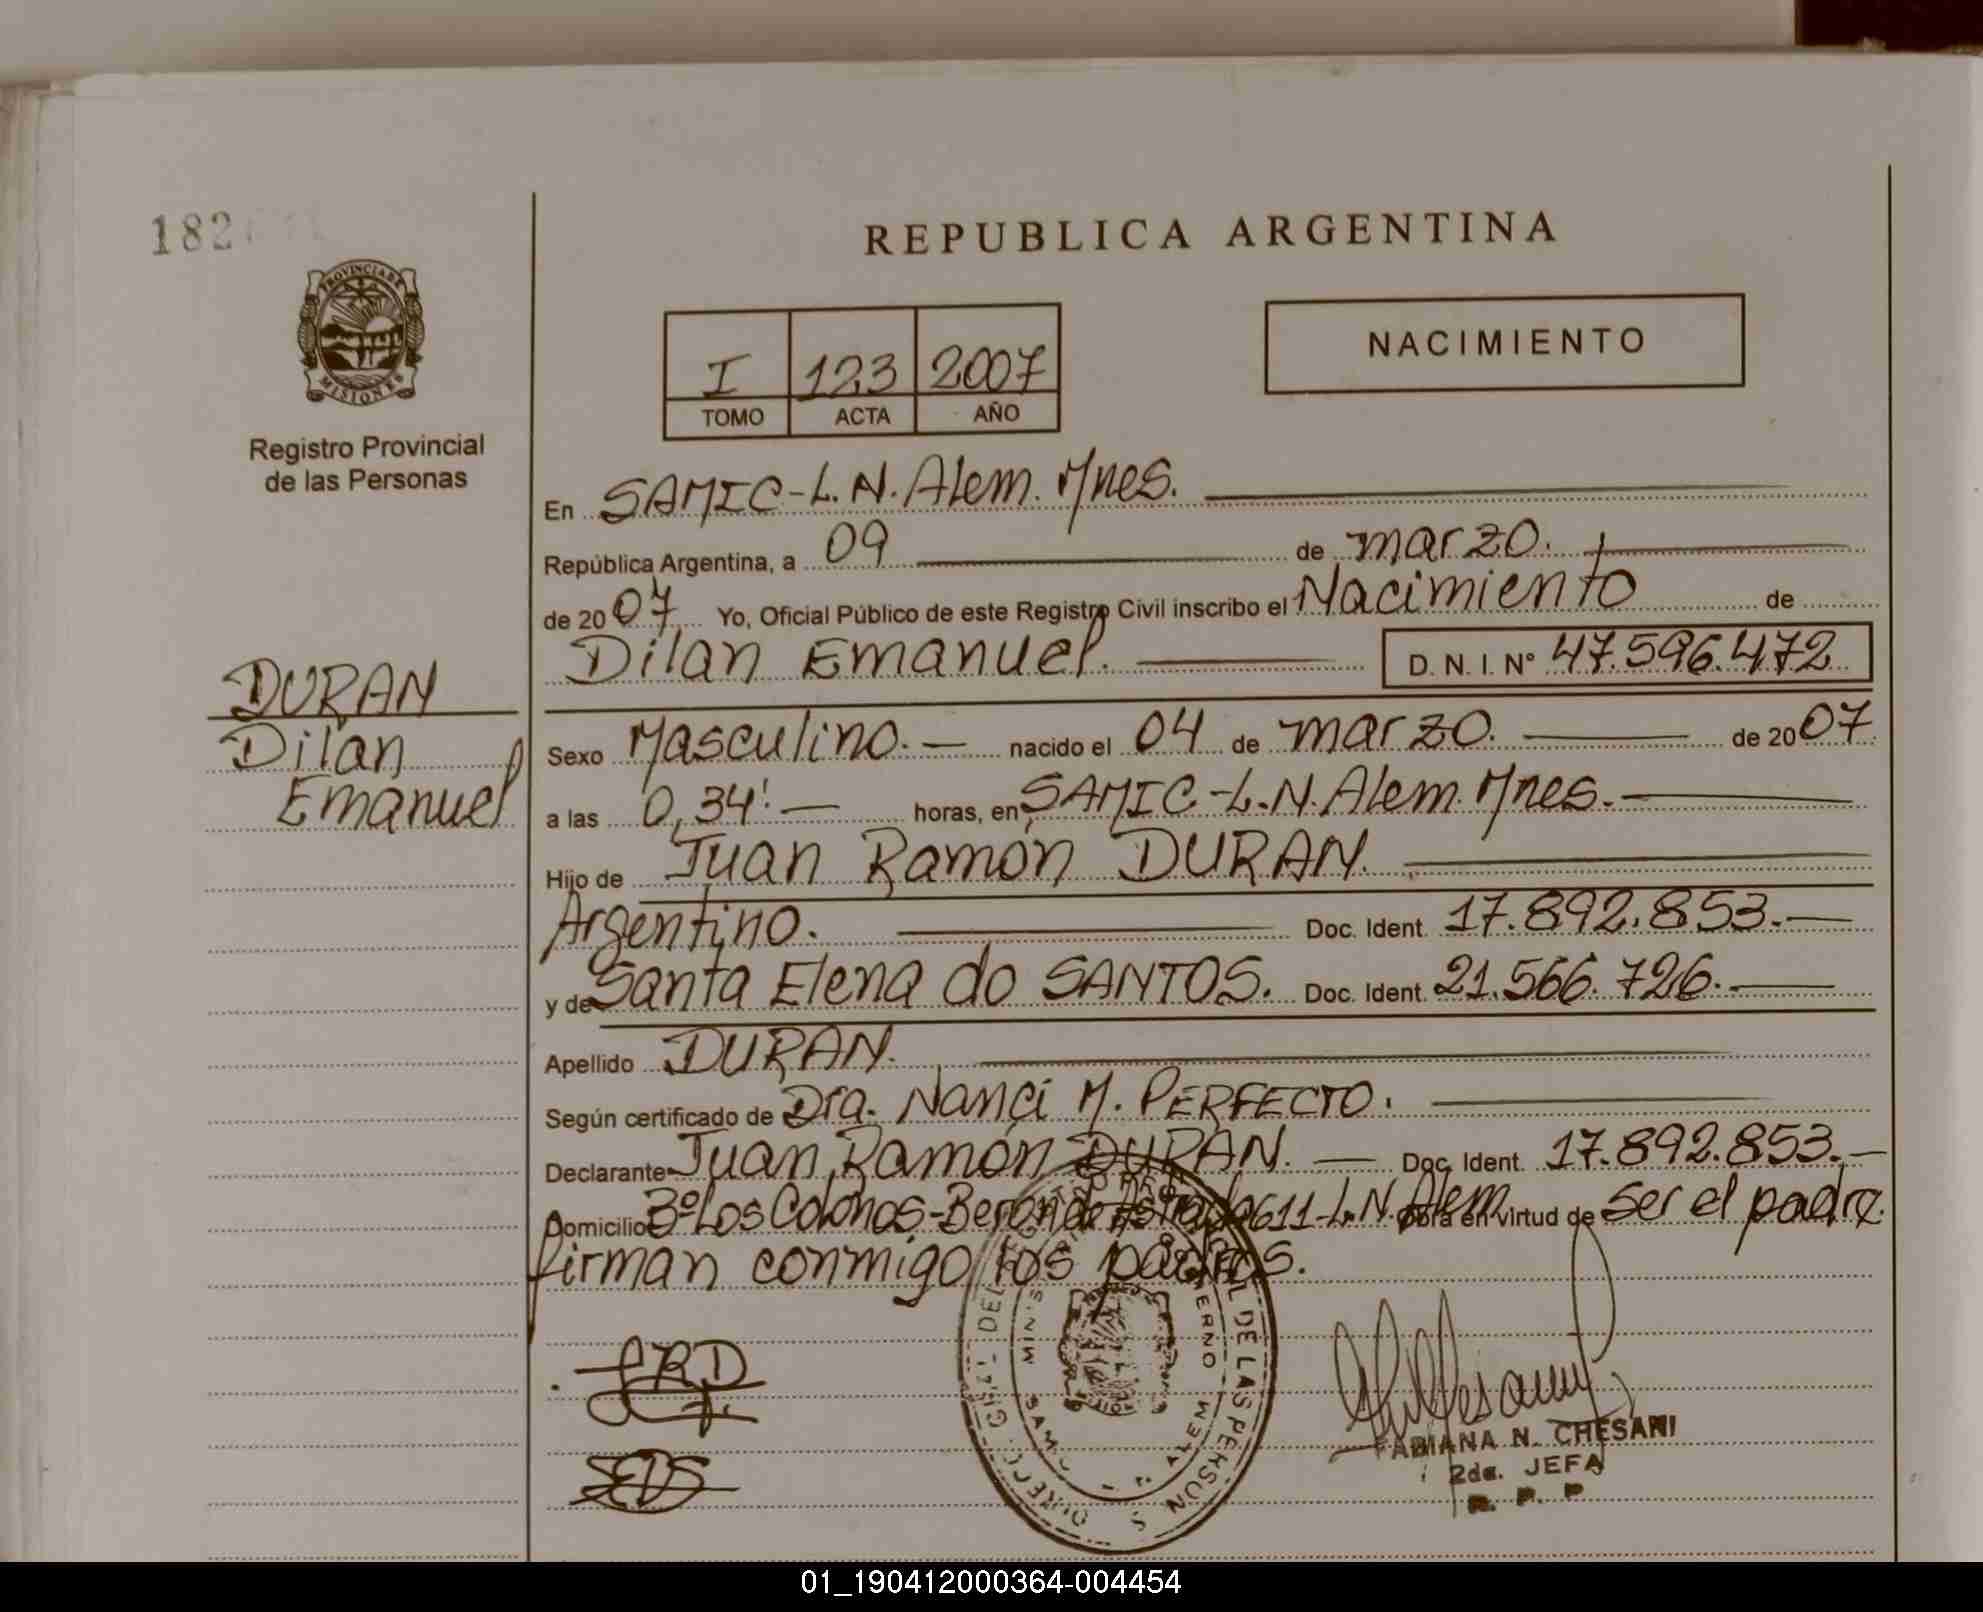 182
REPUBLICA ARGENTINA
PROVINCIA DE
MISIONES
Registro Provincial
de las Personas
I 123 2007
TOMO ACTA AÑO
NACIMIENTO
En SAMIC-L.N. Alem. Mnes.
República Argentina, a 09 de marzo.
de 2007 Yo, Oficial Público de este Registro Civil inscribo el Nacimiento de
Dilan Emanuel. D. N. I. Nº 47.596.472
DURAN
Dilan
Emanuel
Sexo Masculino.- nacido el 04 de marzo. de 2007
a las 0,34'.- horas, en SAMIC-L.N. Alem. Mnes.-
Hijo de Juan Ramón DURAN.
Argentino. Doc. Ident. 17.892.853.-
y de Santa Elena do SANTOS. Doc. Ident. 21.566.726.-
Apellido DURAN.
Según certificado de Dra. Nanci M. PERFECTO.
Declarante Juan Ramón DURAN. - Doc. Ident. 17.892.853.-
Domicilio Bº Los Colonos- 611-L.N. Alem Obra en virtud de ser el padre.
firman conmigo los padres.
JRD
SEDS
DE LAS PERSON S
ALEM
FABIANA N. CHESANI
2da. JEFA
R. P. P
01_190412000364-004454